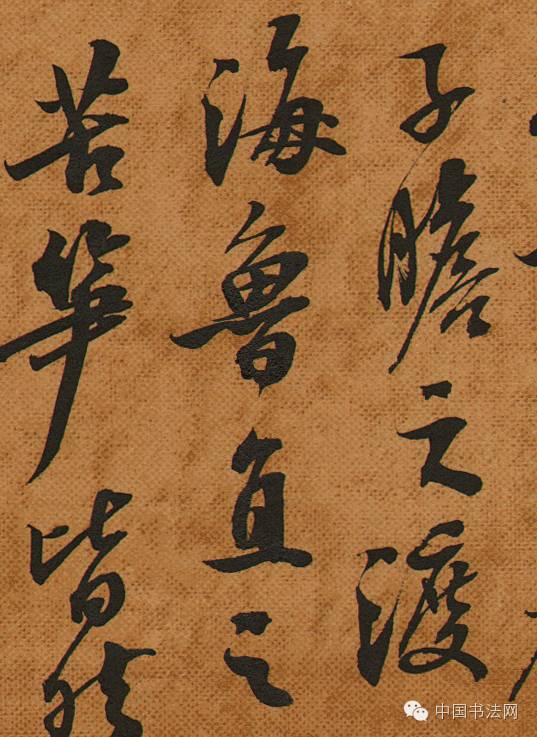 子瞻之渡
海鲁直之
苦笋皆然
中国书法网